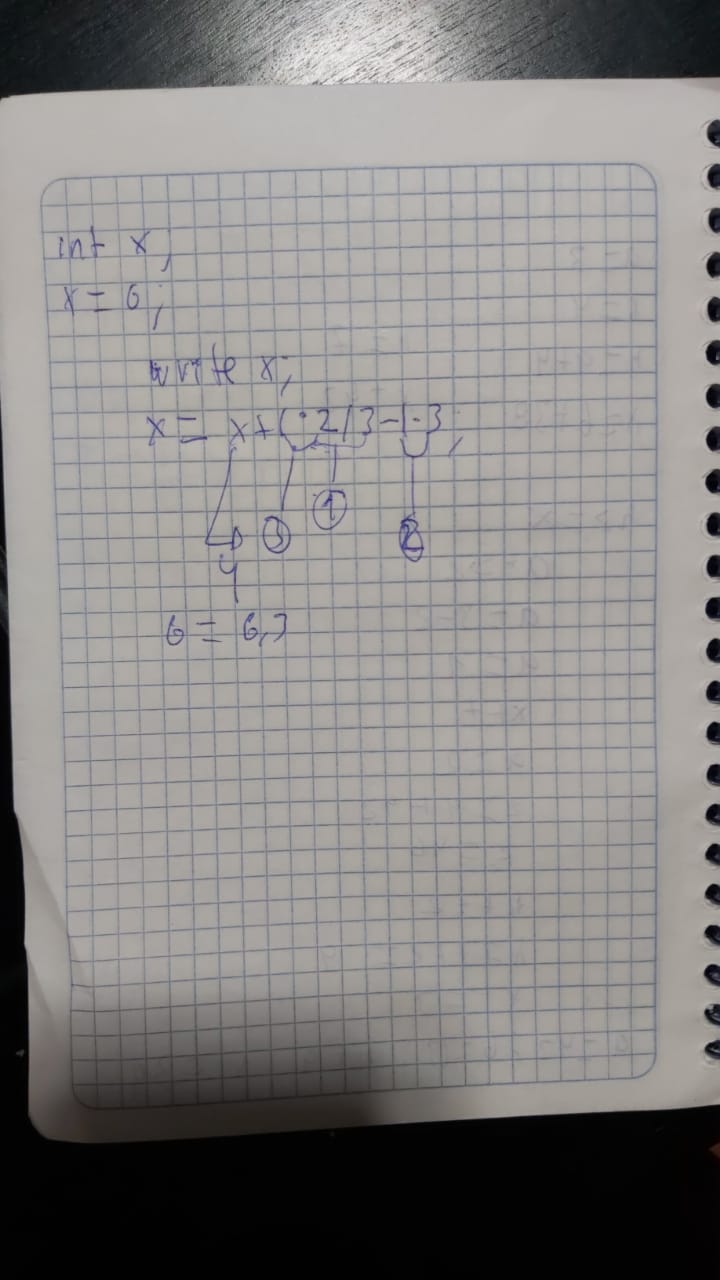 int x;
x = 6;
write x;
x = x + (·2/3 - 1·3;
3 1 2
4
6 = 6,3